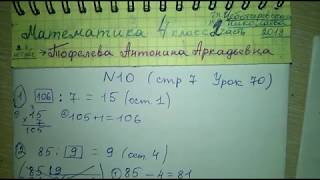 Математика 4 класс 2 часть 2019
Тофелева Антонина Аркадьевна
N10 (стр 7 Урок 70)
① 106 : 7 = 15 (ост 1)
① ×15
7
105
② 105+1=106
② 85 : 9 = 9 (ост 4)
85 9
① 85-4=81